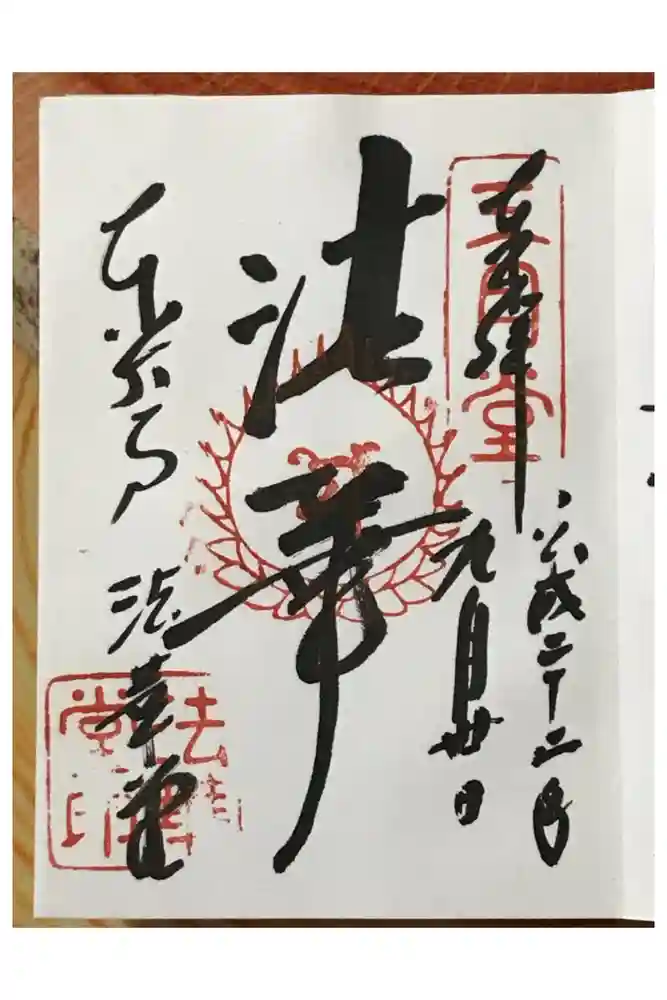 奉拝
三月堂
平成二十二年
九月廿日
法華
東大寺 法華堂
法華堂印